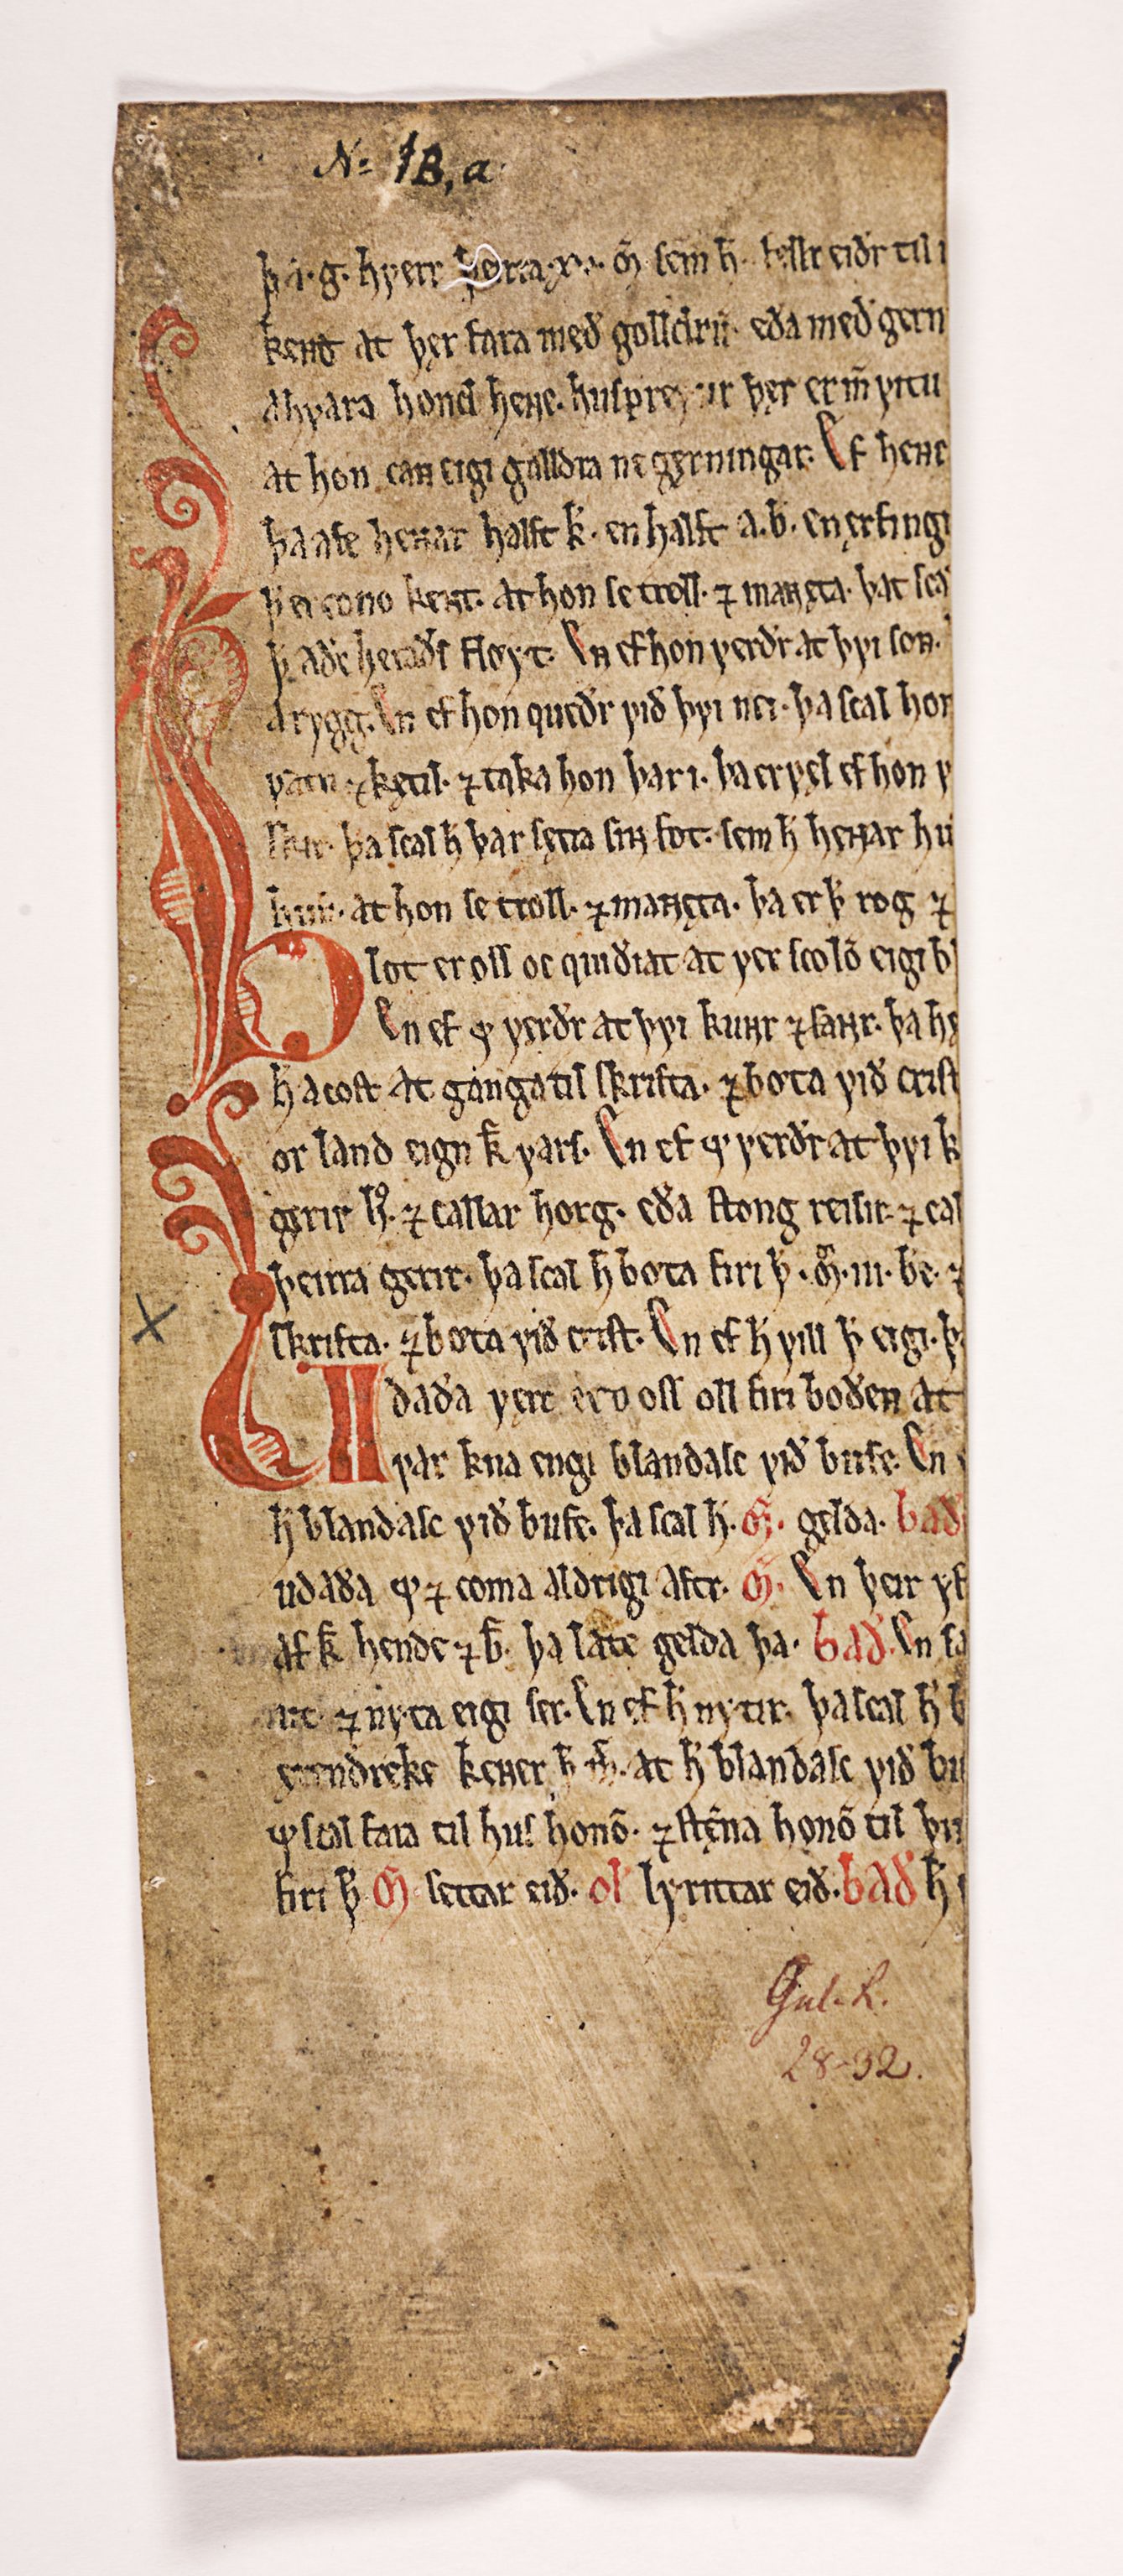 No 1B, a
þ á. g. hꝩerr þerra .xv. ꝳ sem h̅. fellr eiðr til
kent at þer fara með golldrū. eða með gern
ahꝩara hond heɴe. husꝑreyiur þer er m̅ ꝩitu
at hon caɴ eigi galldra ne gerningar. En ef heɴe
þa afe heɴar halft k̅. en halft a.b. en erfingi
þ er cono kent. at hon se troll. ⁊ maɴęta. þat scā
þ aðr heraðs fleyt. En ef hon ꝩerðr at þꝩi soɴ.
a rygg. En ef hon queðr ꝩið þꝩi nei. þa scal hon
ꝩatn ⁊ kętil. ⁊ taka hon þar i. þa er ꝩęl ef hon ꝩ
þa scal h̅ þar sętta siɴ fot. sem h̅ heɴar hu
at hon se troll. ⁊ maɴęta. þa er þ rog ⁊
Blot er oss oc quiðiat at ꝩer scolō eigi b
En ef ꝙ ꝩerðr at þꝩi kuɴr ⁊ saɴr. þa hę
h̅ a cost at ganga til skrifta. ⁊ bǿta ꝩið crist
or land eign k̅ ꝩars. En ef ꝙ ꝩerðr at þꝩi k
gerir h̅. ⁊ callar horg. eða stong reisir. ⁊ cal
þeirra gerir. þa scal h̅ bǿta firi þ. ꝳ. III. b̅c. ⁊
skrifta. ⁊ bǿta ꝩið crist. En ef h̅ ꝩill þ eigi. þ
Udaða ꝩerc ero oss oll firi boðen at
ꝩar kna engi blandasc ꝩið bufe. En
h̅ blandasc ꝩið bufe. þa scal h̅. ꝳ. gelda. bað
udaða ꝙ ⁊ coma aldrigi aftr. ꝳ. En þeir
af k̅ hende ⁊ b̅. þa late gelda þa. bað. En sa
⁊ nyta eigi ser. En ef h̅ nytir. þa scal h̅ b
erendreke keɴer h̅ m̅. at h̅ blandasc ꝩið bu
ꝙ scal fara til hus honō. ⁊ stęfna honō til þi
firi þ ꝳ settar eið. ol lyrittar eið. bað h̅
Gul. L.
28-32.